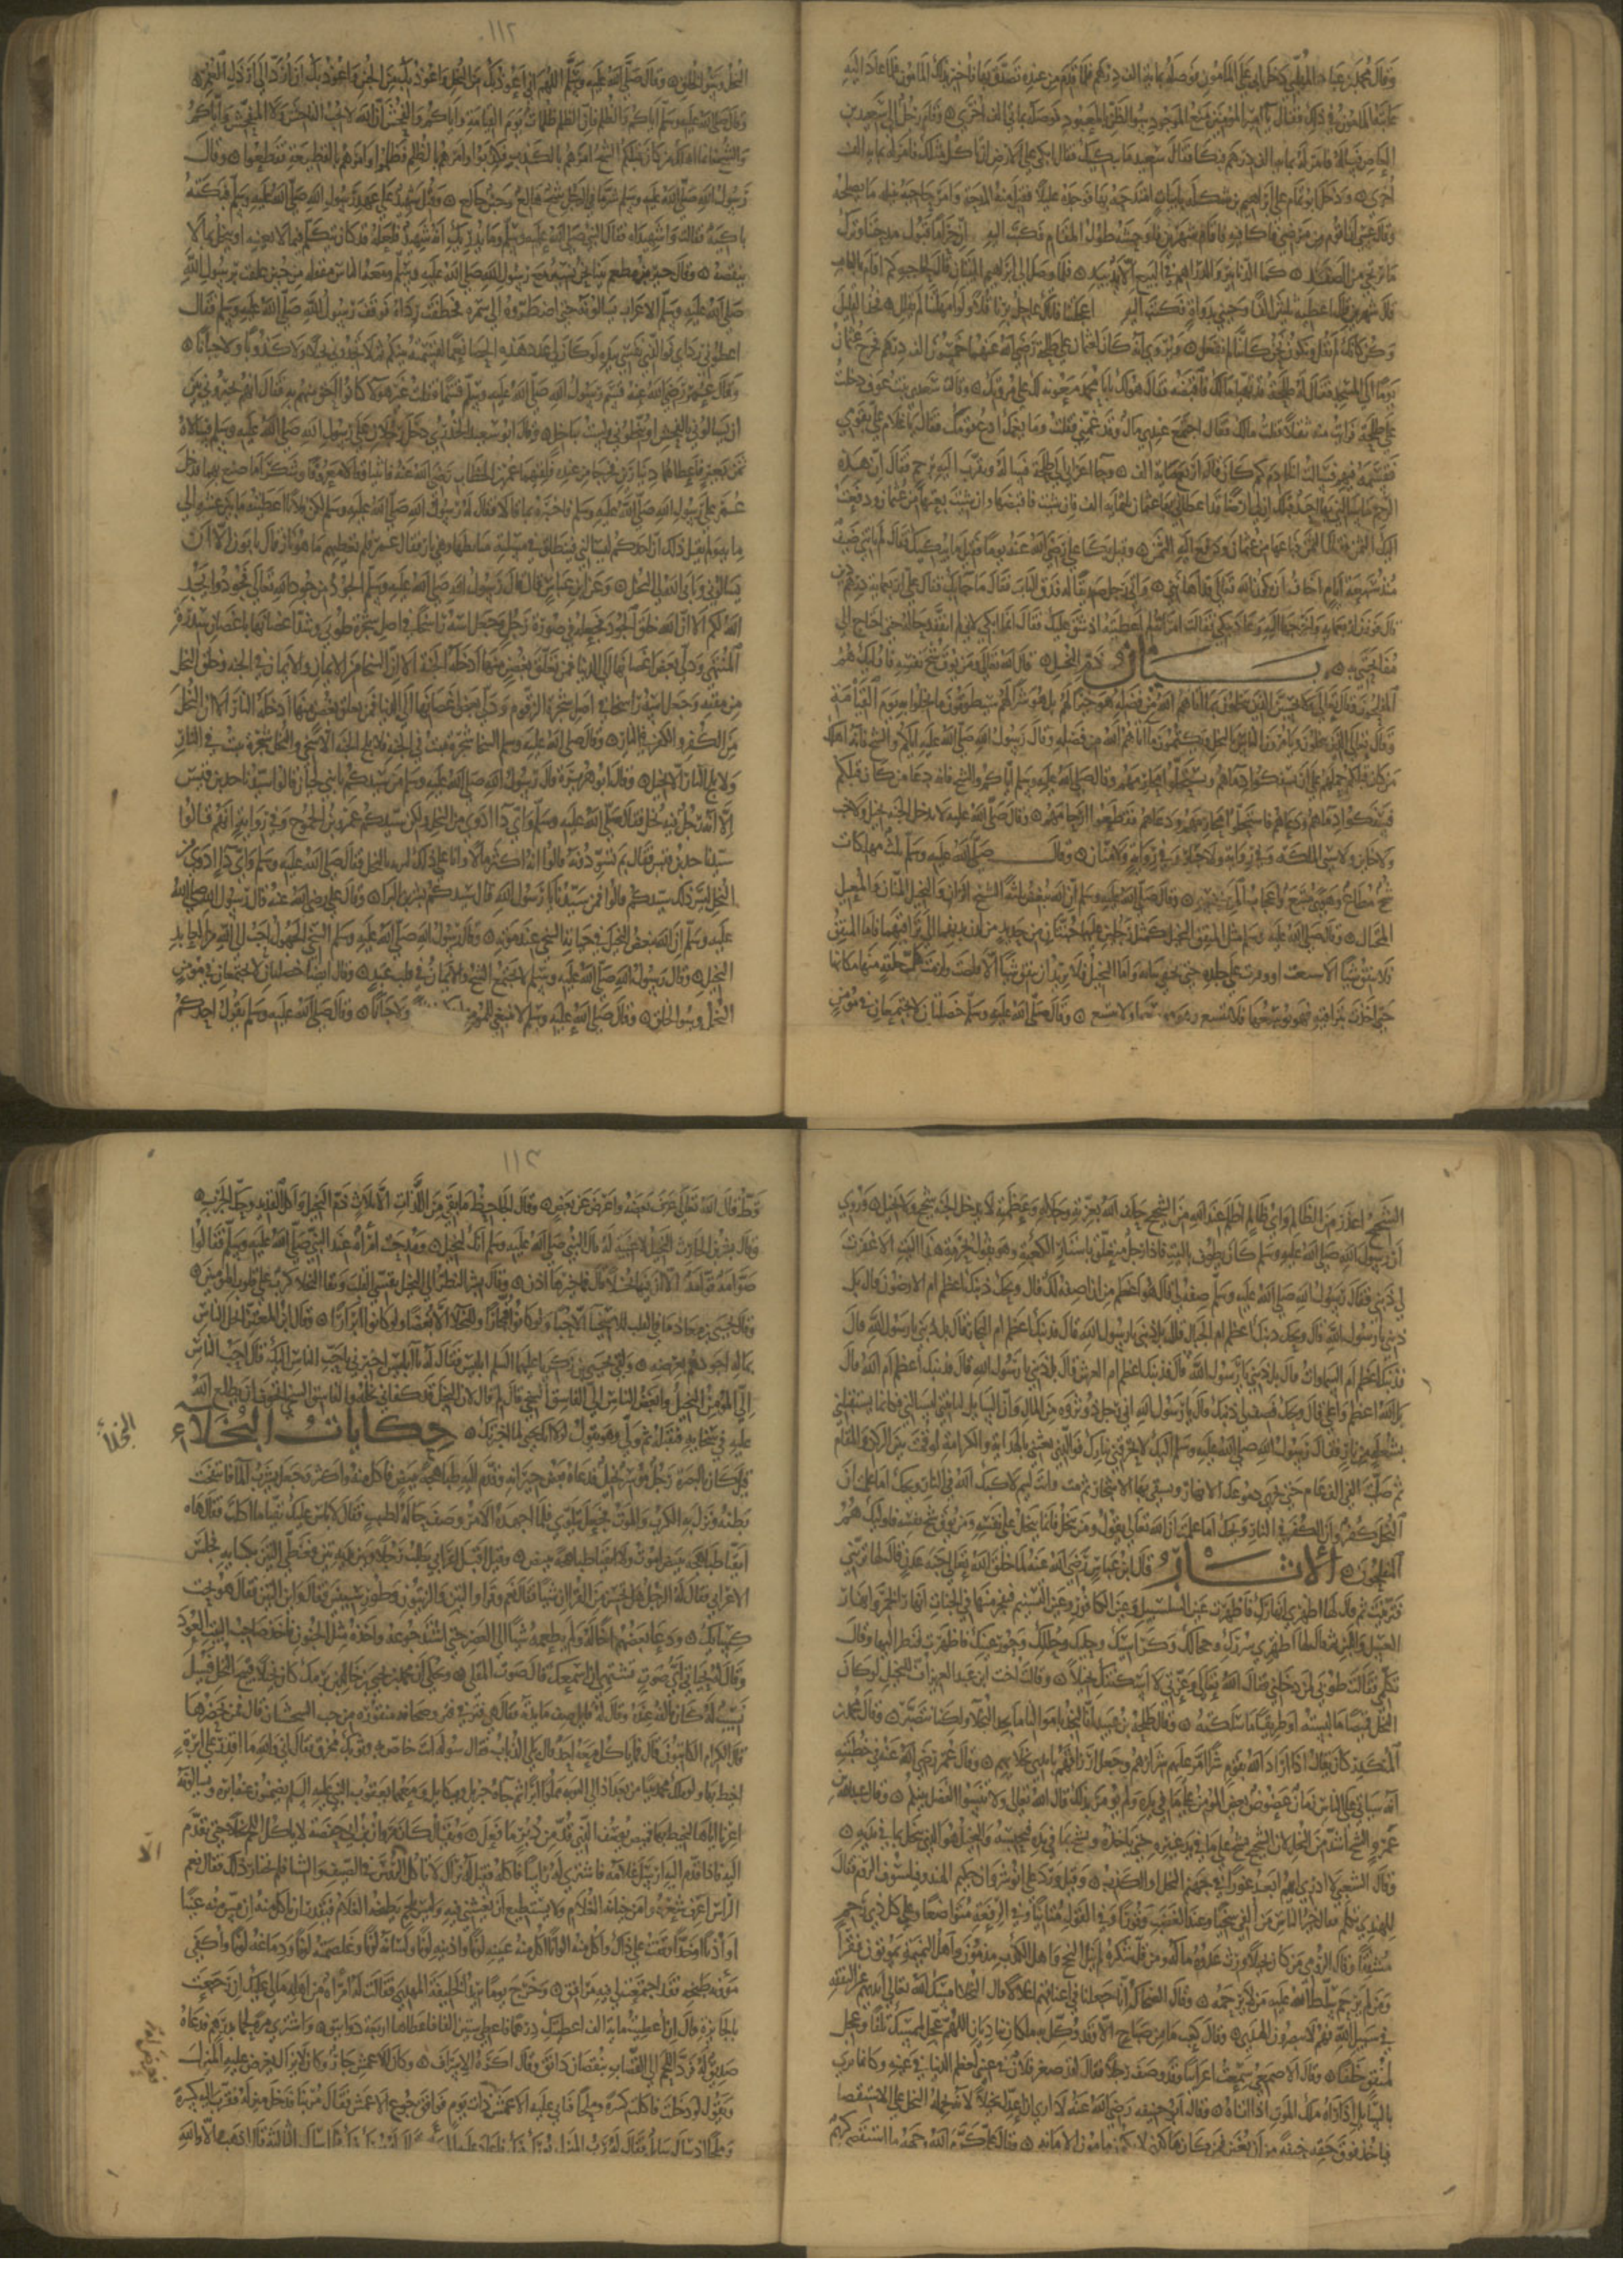 وقال محمد بن عباد المهلبي دخل ابي على المامون فوصله بمايه الف درهم فلما قام من عنده تصدق بها فاخبر بذلك المامون فلما عاد اليه
عاتبه المامون في ذلك فقال يا امير المومنين منع الموجود سوء الظن بالمعبود فوصله بمايه الف اخرى وقام رجل الى سعيد بن
العاص فساله فامر له بمايه الف درهم فبكا فقال له سعيد ما يبكيك فقال ابكي على الارض ان تاكل مثلك فامر له بمايه الف
اخرى ودخل ابو تمام على ابراهيم بن شكله بابيات امتدحه بها فوجده عليلا فقبل منه المدحه وامر حاجبه بنيله ما يصلحه
وقال عسى ان اقوم من مرضي فاكافيه فاقام شهرين فاوحشه طول المقام فكتب اليه ان حراما قبول مدحتنا وترك
ما نرتجي من الصفد كما الدنانير والدراهم في البيع حرام الا يدا بيد فلما وصل الى ابراهيم البيتان قال لحاجبه كم اقام بالباب
قال شهرين قال اعطه ثلثين الفا وجيني بدواة فكتب اليه اعجلتنا فاتاك عاجل برنا قلا ولو امهلتنا لم نقلل فخذ القليل
وكن كانك لم تقل ونكون نحن كاننا لم نفعل وروي انه كان لعثمان على طلحة رضي الله عنهما خمسون الف درهم فخرج عثمان
يوما الى المسجد فقال له طلحة قد تهيا مالك فاقبضه فقال هو لك يابا محمد معونه لك على مروتك وقالت سعدى بنت عوف دخلت
على طلحة فرايت منه ثقلا فقلت مالك فقال اجتمع عندي مال وقد غمني فقلت وما يغمك ادع قومك فقال يا غلام علي بقومي
فقسمه فيهم فسالت الخادم كم كان قال اربعمايه الف وجا اعرابي الى طلحة فساله وتقرب اليه برحم فقال ان هذه
الرحم ما سالني بها احد قبلك ان لي ارضا قد اعطاني بها عثمان ثلثمايه الف فان شيت فاقبضها وان شيت بعتها من عثمان ودفعت
اليك الثمن فقال الثمن فباعها من عثمان ودفع اليه الثمن وقيل بكا علي رضي الله عنه يوما فقيل ما يبكيك فقال لم ياتني ضيف
منذ سبعة ايام اخاف ان يكون الله تعالى قد اهانني واتى رجل صديقا له فدق الباب فقال ما جا بك قال علي اربعمايه درهم دين
قال فوزن له اربعمايه واخرجها اليه وعاد يبكي فقالت امراته لم اعطيته اذ شق عليك فقال انما ابكي لاني لم اتفقد حاله حتى احتاج الى
مفاتحتي به بيان ذم البخل قال الله تعالى ومن يوق شح نفسه فاوليك هم
المفلحون وقال تعالى ولا يحسبن الذين يبخلون بما اتاهم الله من فضله هو خيرا لهم بل هو شر لهم سيطوقون ما بخلوا به يوم القيامة
وقال تعالى الذين يبخلون ويامرون الناس بالبخل ويكتمون ما اتاهم الله من فضله وقال رسول الله صلى الله عليه اياكم والشح فانه اهلك
من كان قبلكم حملهم على ان سفكوا دماهم واستحلوا محارمهم وقال صلى الله عليه وسلم اياكم والشح فانه دعا من كان قبلكم
فسفكوا دماهم ودعاهم فاستحلوا محارمهم ودعاهم فقطعوا ارحامهم وقال صلى الله عليه لا يدخل الجنه بخيل ولا خب
ولا خاين ولا سي الملكه وفي رواية ولا جبار وفي رواية ولا منان وقال صلى الله عليه وسلم ثلث مهلكات
شح مطاع وهوى متبع واعجاب المرء بنفسه وقال صلى الله عليه وسلم ان الله يبغض ثلثة الشيخ الزاني والبخيل المنان والمعيل
المختال وقال صلى الله عليه وسلم مثل المنفق والبخيل كمثل رجلين عليهما جبتان من حديد من لدن ثديهما الى تراقيهما فاما المنفق
فلا ينفق شيا الا سبغت او وفرت على جلده حتى تخفي بنانه واما البخيل فلا يريد ان ينفق شيا الا قلصت ولزمت كل حلقة منها مكانها
حتى اخذت بتراقيه فهو يوسعها فلا تتسع وقال صلى الله عليه وسلم خصلتان لا تجتمعان في مومن
١١٢
البخل وسو الخلق وقال صلى الله عليه وسلم اللهم اني اعوذ بك من البخل واعوذ بك من الجبن واعوذ بك ان ارد الى ارذل العمر
وقال صلى الله عليه وسلم اياكم والظلم فان الظلم ظلمات يوم القيامة واياكم والفحش ان الله لا يحب الفاحش ولا المتفحش واياكم
والشح فانما اهلك من كان قبلكم الشح امرهم بالكذب فكذبوا وامرهم بالظلم فظلموا وامرهم بالقطيعة فقطعوا وقال
رسول الله صلى الله عليه وسلم شر ما في الرجل شح هالع وجبن خالع وقتل شهيد على عهد رسول الله صلى الله عليه وسلم فبكته
باكية فقالت واشهيداه فقال النبي صلى الله عليه وسلم وما يدريك انه شهيد فلعله قد كان يتكلم فيما لا يعنيه او يبخل بما لا
ينقصه وقال جبير بن مطعم بينا نحن نسير مع رسول الله صلى الله عليه وسلم ومعه الناس مقفله من حنين علقت برسول الله
صلى الله عليه وسلم الاعراب يسالونه حتى اضطروه الى سمرة فخطفت رداه فوقف رسول الله صلى الله عليه وسلم فقال
اعطوني رداي فوالذي نفسي بيده لو كان لي عدد هذه العضاه نعما لقسمته بينكم ثم لا تجدوني بخيلا ولا كذوبا ولا جبانا
وقال عمر رضي الله عنه قسم رسول الله صلى الله عليه وسلم قسما فقلت غير هولا كانوا احق به منهم فقال انهم يخيروني بين
ان يسالوني بالفحش او يبخلوني ولست بباخل وقال ابو سعيد الخدري دخل رجلان على رسول الله صلى الله عليه وسلم فسالاه
ثمن بعير فاعطاهما دينارين فخرجا من عنده فلقيهما عمر بن الخطاب رضي الله عنه فاثنيا وقالا معروفا وشكرا ما صنع بهما فدخل
عمر على رسول الله صلى الله عليه وسلم فاخبره بما قالا فقال له رسول الله صلى الله عليه وسلم لكن فلان اعطيته ما بين عشرة الى
مايه ولم يقل ذلك ان احدكم ليسالني فينطلق في مسالته متابطها وهي نار فقال عمر فلم تعطيهم ما هو نار قال يابون الا ان
يسالوني ويابى الله لي البخل وعن ابن عباس قال قال رسول الله صلى الله عليه وسلم الجود من جود الله تعالى فجودوا يجد
الله لكم الا ان الله خلق الجود فجعله في صورة رجل وجعل راسه راسخا في اصل شجرة طوبى وشد اغصانها باغصان سدرة
المنتهى ودلى بعض اغصانها الى الدنيا فمن تعلق بغصن منها ادخله الجنة الا ان السخا من الايمان والايمان في الجنه وخلق البخل
من مقته وجعل راسه راسخا في اصل شجرة الزقوم ودلى بعض اغصانها الى الدنيا فمن تعلق بغصن منها ادخله النار الا ان البخل
من الكفر والكفر في النار وقال صلى الله عليه وسلم السخا شجرة تنبت في الجنه فلا يلج الجنه الا سخي والبخل شجرة تنبت في النار
ولا يلج النار الا بخيل وقال ابو هريرة قال رسول الله صلى الله عليه وسلم من سيدكم يا بني لحيان قالوا سيدنا جد بن قيس
الا انه رجل فيه بخل فقال صلى الله عليه وسلم واي دا ادوى من البخل ولكن سيدكم عمرو بن الجموح وفي رواية انهم قالوا
سيدنا جد بن قيس فقال بم تسودونه قالوا انه اكثرنا مالا وانا على ذلك لنرى منه البخل فقال صلى الله عليه وسلم واي دا ادوى من
البخل ليس ذلك سيدكم قالوا فمن سيدنا يا رسول الله قال سيدكم بشر بن البرا وقال علي رضي الله عنه قال رسول الله صلى الله
عليه وسلم ان الله يبغض البخيل في حياته السخي عند موته وقال رسول الله صلى الله عليه وسلم السخي الجهول احب الى الله من العابد
البخيل وقال رسول الله صلى الله عليه وسلم لا يجتمع الشح والايمان في قلب عبد وقال ايضا خصلتان لا تجتمعان في مومن
البخل وسو الخلق وقال صلى الله عليه وسلم لا ينبغي لمومن ولا جبانا وقال صلى الله عليه وسلم يقول احدكم
الشحيح اعذر من الظالم واي ظلم اظلم عند الله من الشح حلف الله بعزته وجلاله وعظمته لا يدخل الجنة شحيح ولا بخيل وروي
ان رسول الله صلى الله عليه وسلم كان يطوف بالبيت فاذا رجل متعلق باستار الكعبة وهو يقول بحرمة هذا البيت الا غفرت
لي ذنبي فقال رسول الله صلى الله عليه وسلم وما ذنبك صفه لي قال هو اعظم من ان اصفه لك قال ويحك ذنبك اعظم ام الارضون قال بل
ذنبي يا رسول الله قال ويحك ذنبك اعظم ام الجبال قال بل ذنبي يا رسول الله قال فذنبك اعظم ام البحار قال بل ذنبي يا رسول الله قال
فذنبك اعظم ام السموات قال بل ذنبي يا رسول الله قال فذنبك اعظم ام العرش قال بل ذنبي يا رسول الله قال فذنبك اعظم ام الله قال
بل الله اعظم واعلى قال ويحك فصف لي ذنبك قال يا رسول الله اني رجل ذو ثروة من المال وان السايل لياتيني ليسالني فكانما يستقبلني
بشعلة من نار فقال رسول الله صلى الله عليه وسلم اليك عني لا تحرقني بنارك فوالذي بعثني بالهداية والكرامة لو قمت بين الركن والمقام
ثم صليت الفي الف عام حتى تجري من دموعك الانهار وتسقى بها الاشجار ثم مت وانت لييم لاكبك الله في النار ويحك اما علمت ان
البخل كفر وان الكفر في النار ويحك اما علمت ان الله تعالى يقول ومن يبخل فانما يبخل على نفسه ومن يوق شح نفسه فاوليك هم
المفلحون الاثار قال ابن عباس رضي الله عنه لما خلق الله تعالى جنة عدن قال لها تزيني
فتزينت ثم قال لها اظهري انهارك فاظهرت عين السلسبيل وعين الكافور وعين التسنيم فتفجر منها في الجنان انهار الخمر وانهار
العسل واللبن ثم قال لها اظهري سررك وحجالك وكراسيك وحليك وحللك وحور عينك فاظهرت فنظر اليها فقال
تكلمي فقالت طوبى لمن دخلني فقال الله تعالى وعزتي لا اسكنك بخيلا وقالت اخت عمر بن عبد العزيز اف للبخيل لو كان
البخل قميصا ما لبسته او طريقا ما سلكته وقال طلحة بن عبيد الله انا لنجد باموالنا ما يجد البخلا ولكننا نتصبر وقال محمد بن
المنكدر كان يقال اذا اراد الله بقوم شرا امر عليهم شرارهم وجعل ارزاقهم بايدي بخلايهم وقال علي رضي الله عنه في خطبته
انه سياتي على الناس زمان عضوض يعض المومن على ما في يده ولم يومر بذلك قال الله تعالى ولا تنسوا الفضل بينكم وقال عبد الله بن
عمرو الشح اشد من البخل لان الشحيح يشح على ما في يد غيره حتى ياخذه ويشح بما في يده فيحبسه والبخيل هو الذي يبخل بما في يديه
وقال الشعبي لا ادري ايهما ابعد غورا في جهنم البخل او الكذب وقيل ورد على انوشروان حكيم الهند وفيلسوف الروم فقال
للهندي تكلم فقال خير الناس من الفي سخيا وعند الغضب وقورا وفي القول متانيا وفي الرفعة متواضعا وعلى كل ذي رحم
مشفقا وقال الرومي من كان بخيلا ورث عدوه ماله ومن قل شكره لم ينل النجح واهل الكذب مذمومون واهل النميمة يموتون فقرا
ومن لم يرحم سلط الله عليه من لا يرحمه وقال الضحاك انا جعلنا في اعناقهم اغلالا قال البخل امسك الله تعالى ايديهم عن النفقة
في سبيل الله فهم لا يبصرون الهدى وقال كعب ما من صباح الا وقد وكل به ملكان يناديان اللهم عجل لممسك تلفا وعجل
لمنفق خلفا وقال الاصمعي سمعت اعرابيا وقد وصف رجلا فقال لقد صغر فلان في عيني لعظم الدنيا في عينه وكانما يرى
بالسايل اذا راه ملك الموت اذا اتاه وقال ابو حنيفه رضي الله عنه لا ارى ان اعدل بخيلا لانه يحمله البخل على الاستقصا
فياخذ فوق حقه خيفة من ان يغبن فمن كان هكذا لا يكون مامون الامانه وقال علي كرم الله وجهه ما استقصى كريم
١١٣
قط قال الله تعالى عرف بعضه واعرض عن بعض وقال الجاحظ ما بقي من اللذات الا ثلاث ذم البخلا واكل القديد وحك الجرب
وقال بشر بن الحارث البخيل لا غيبة له قال النبي صلى الله عليه وسلم انك لبخيل ومدحت امراة عند النبي صلى الله عليه وسلم فقالوا
صوامة قوامة الا ان فيها بخلا قال فما خيرها اذن وقال بشر النظر الى البخيل يقسي القلب ولقا البخلا كرب على قلوب المومنين
وقال يحيى بن معاذ ما في القلب للاسخيا الا حب ولو كانوا فجارا وللبخلا الا بغض ولو كانوا ابرارا وقال ابن المعتز ابخل الناس
بماله اجودهم بعرضه ولقي يحيى بن زكريا عليهما السلم ابليس فقال له يا ابليس اخبرني باحب الناس اليك قال احب الناس
الي المومن البخيل وابغض الناس الي الفاسق السخي قال لم قال لان البخيل قد كفاني بخله والفاسق السخي اتخوف ان يطلع الله
عليه في سخايه فيقبله ثم ولى وهو يقول لولا انك يحيى لما اخبرتك حكايات البخلاء
البخلأ
قيل كان بالبصرة رجل موسر بخيل فدعاه بعض جيرانه وقدم اليه طباهجة ببيض فاكل منه واكثر وجعل يشرب الما فانتفخت
بطنه ونزل به الكرب والموت فجعل يتلوى فلما اجهده الامر وصف حاله لطبيب فقال لا باس عليك تقيا ما اكلت فقال هاه
اتقيا طباهجة ببيض اموت ولا اتقيا طباهجة ببيض وقيل اقبل اعرابي يطلب رجلا وبين يديه تين فغطى التين بكسايه فجلس
الاعرابي فقال له الرجل هل تحسن من القران شيا قال نعم وقرا والزيتون وطور سينين فقال واين التين فقال هو تحت
كسايك ودعا بعضهم اخا له ولم يطعمه شيا الى العصر حتى اشتد جوعه واخذه مثل الجنون فاخذ صاحب البيت العود
وقال له بحياتي اي صوت تشتهي ان اسمعك قال صوت المقلى وحكي ان محمد بن يحيى بن خالد بن برمك كان بخيلا قبيح البخل فسيل
نسيب له كان يالفه عنه وقال له قايل صف مايدته فقال هي فتر في فتر وصحافه منقورة من حب الخشخاش قال فمن يحضرها
قال الكرام الكاتبون قال فما ياكل معه احد قال بلى الذباب فقال سواة له انت خاص به وثوبك مخرق فقال اني والله ما اقدر على ابرة
اخيط بها ولو ملك محمد بيتا من بغداد الى النوبه مملوا ابرا ثم جاه جبريل وميكايل ومعهما يعقوب النبي عليه السلم يضمنون عنه ابرة ويسالونه
اعارته اياها ليخيط بها قميص يوسف الذي قد من دبر ما فعل ويقال كان مروان بن ابي حفصة لا ياكل اللحم بخلا حتى يقدم
اليه فاذا قدم اليه ارسل غلامه فاشترى له راسا فاكله فقيل له نراك لا تاكل الا الرؤس في الصيف والشتا فلم تختار ذلك فقال نعم
الراس اعرف سعره وامن خيانة الغلام ولا يستطيع ان يغبنني فيه وليس بلحم يطبخه الغلام فيقدر ان ياكل منه ان مس منه عينا
او اذنا او خدا وقفت على ذلك واكل منه الوانا اكل منه عينه لونا واذنه لونا ولسانه لونا وغلصمته لونا ودماغه لونا واكفى
موونة طبخه فقد اجتمعت لي فيه مرافق وخرج يوما يريد الخليفة المهدي فقالت له امراة من اهله مالي عليك ان رجعت
بالجايزة قال ان اعطيت مايه الف اعطيتك درهما فاعطي ستين الفا فاعطاها اربعة دوانيق واشترى مرة لحما بدرهم فدعاه
صديق له فرد اللحم الى القصاب بنقصان دانق وقال اكره الاسراف وكان للاعمش جار وكان لا يزال يعرض عليه المنزل
ويقول لو دخلت فاكلت كسرة وملحا فيابى عليه الاعمش ذات يوم فوافق جوع الاعمش فقال مر بنا فدخل منزله فقرب اليه كسرة
وملحا اذ سال سايل فقال له رب المنزل بورك فيك